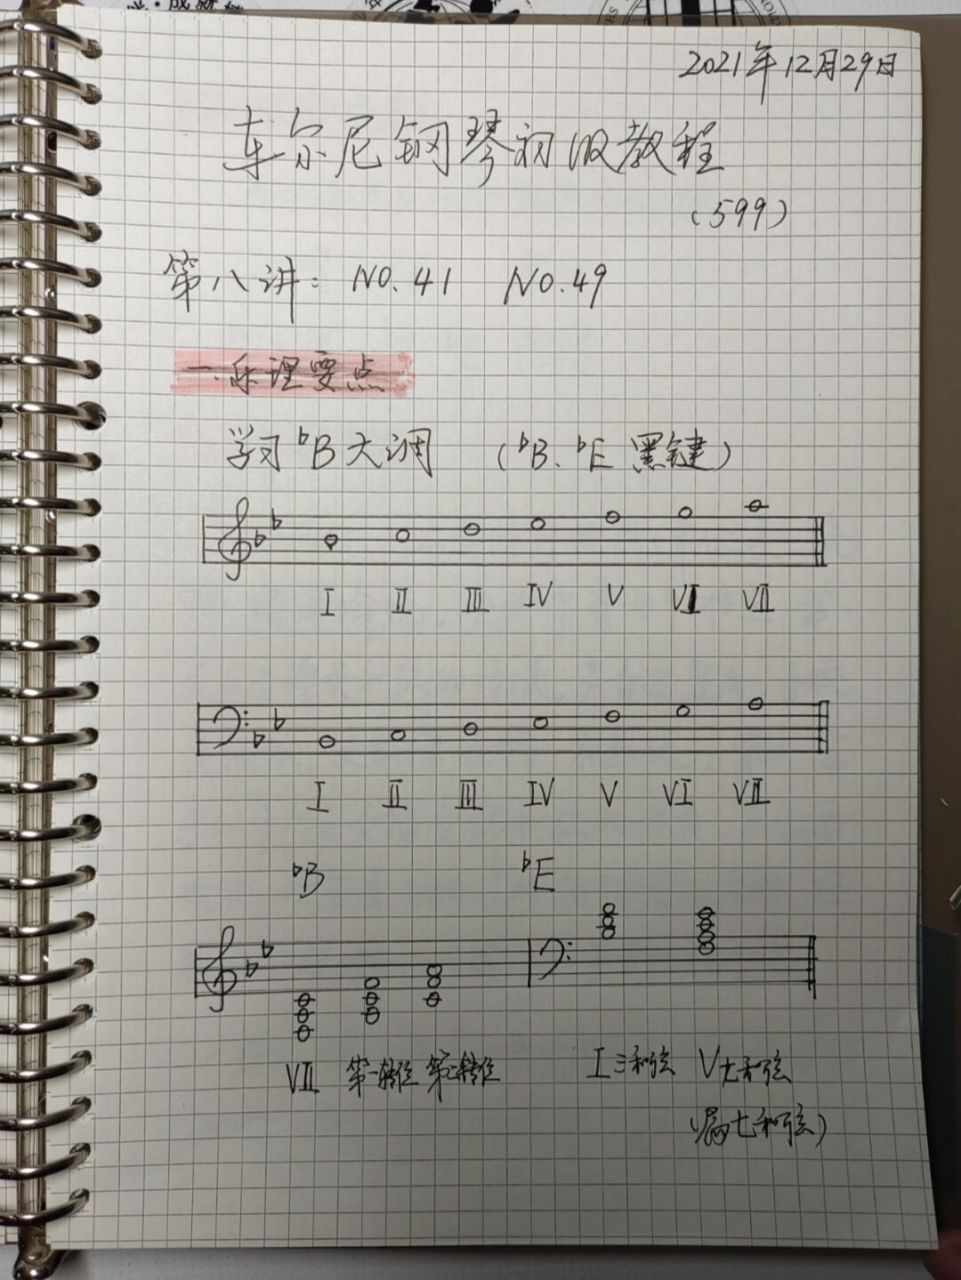 2021年12月29日
车尔尼钢琴初级教程
(599)
第八讲: NO.41 NO.49
一.乐理要点
学习♭B大调 (♭B、♭E 黑键)
I II III IV V VI VII
I II III IV V VI VII
♭B ♭E
VII 第一转位 第二转位 I三和弦 V七和弦
(属七和弦)